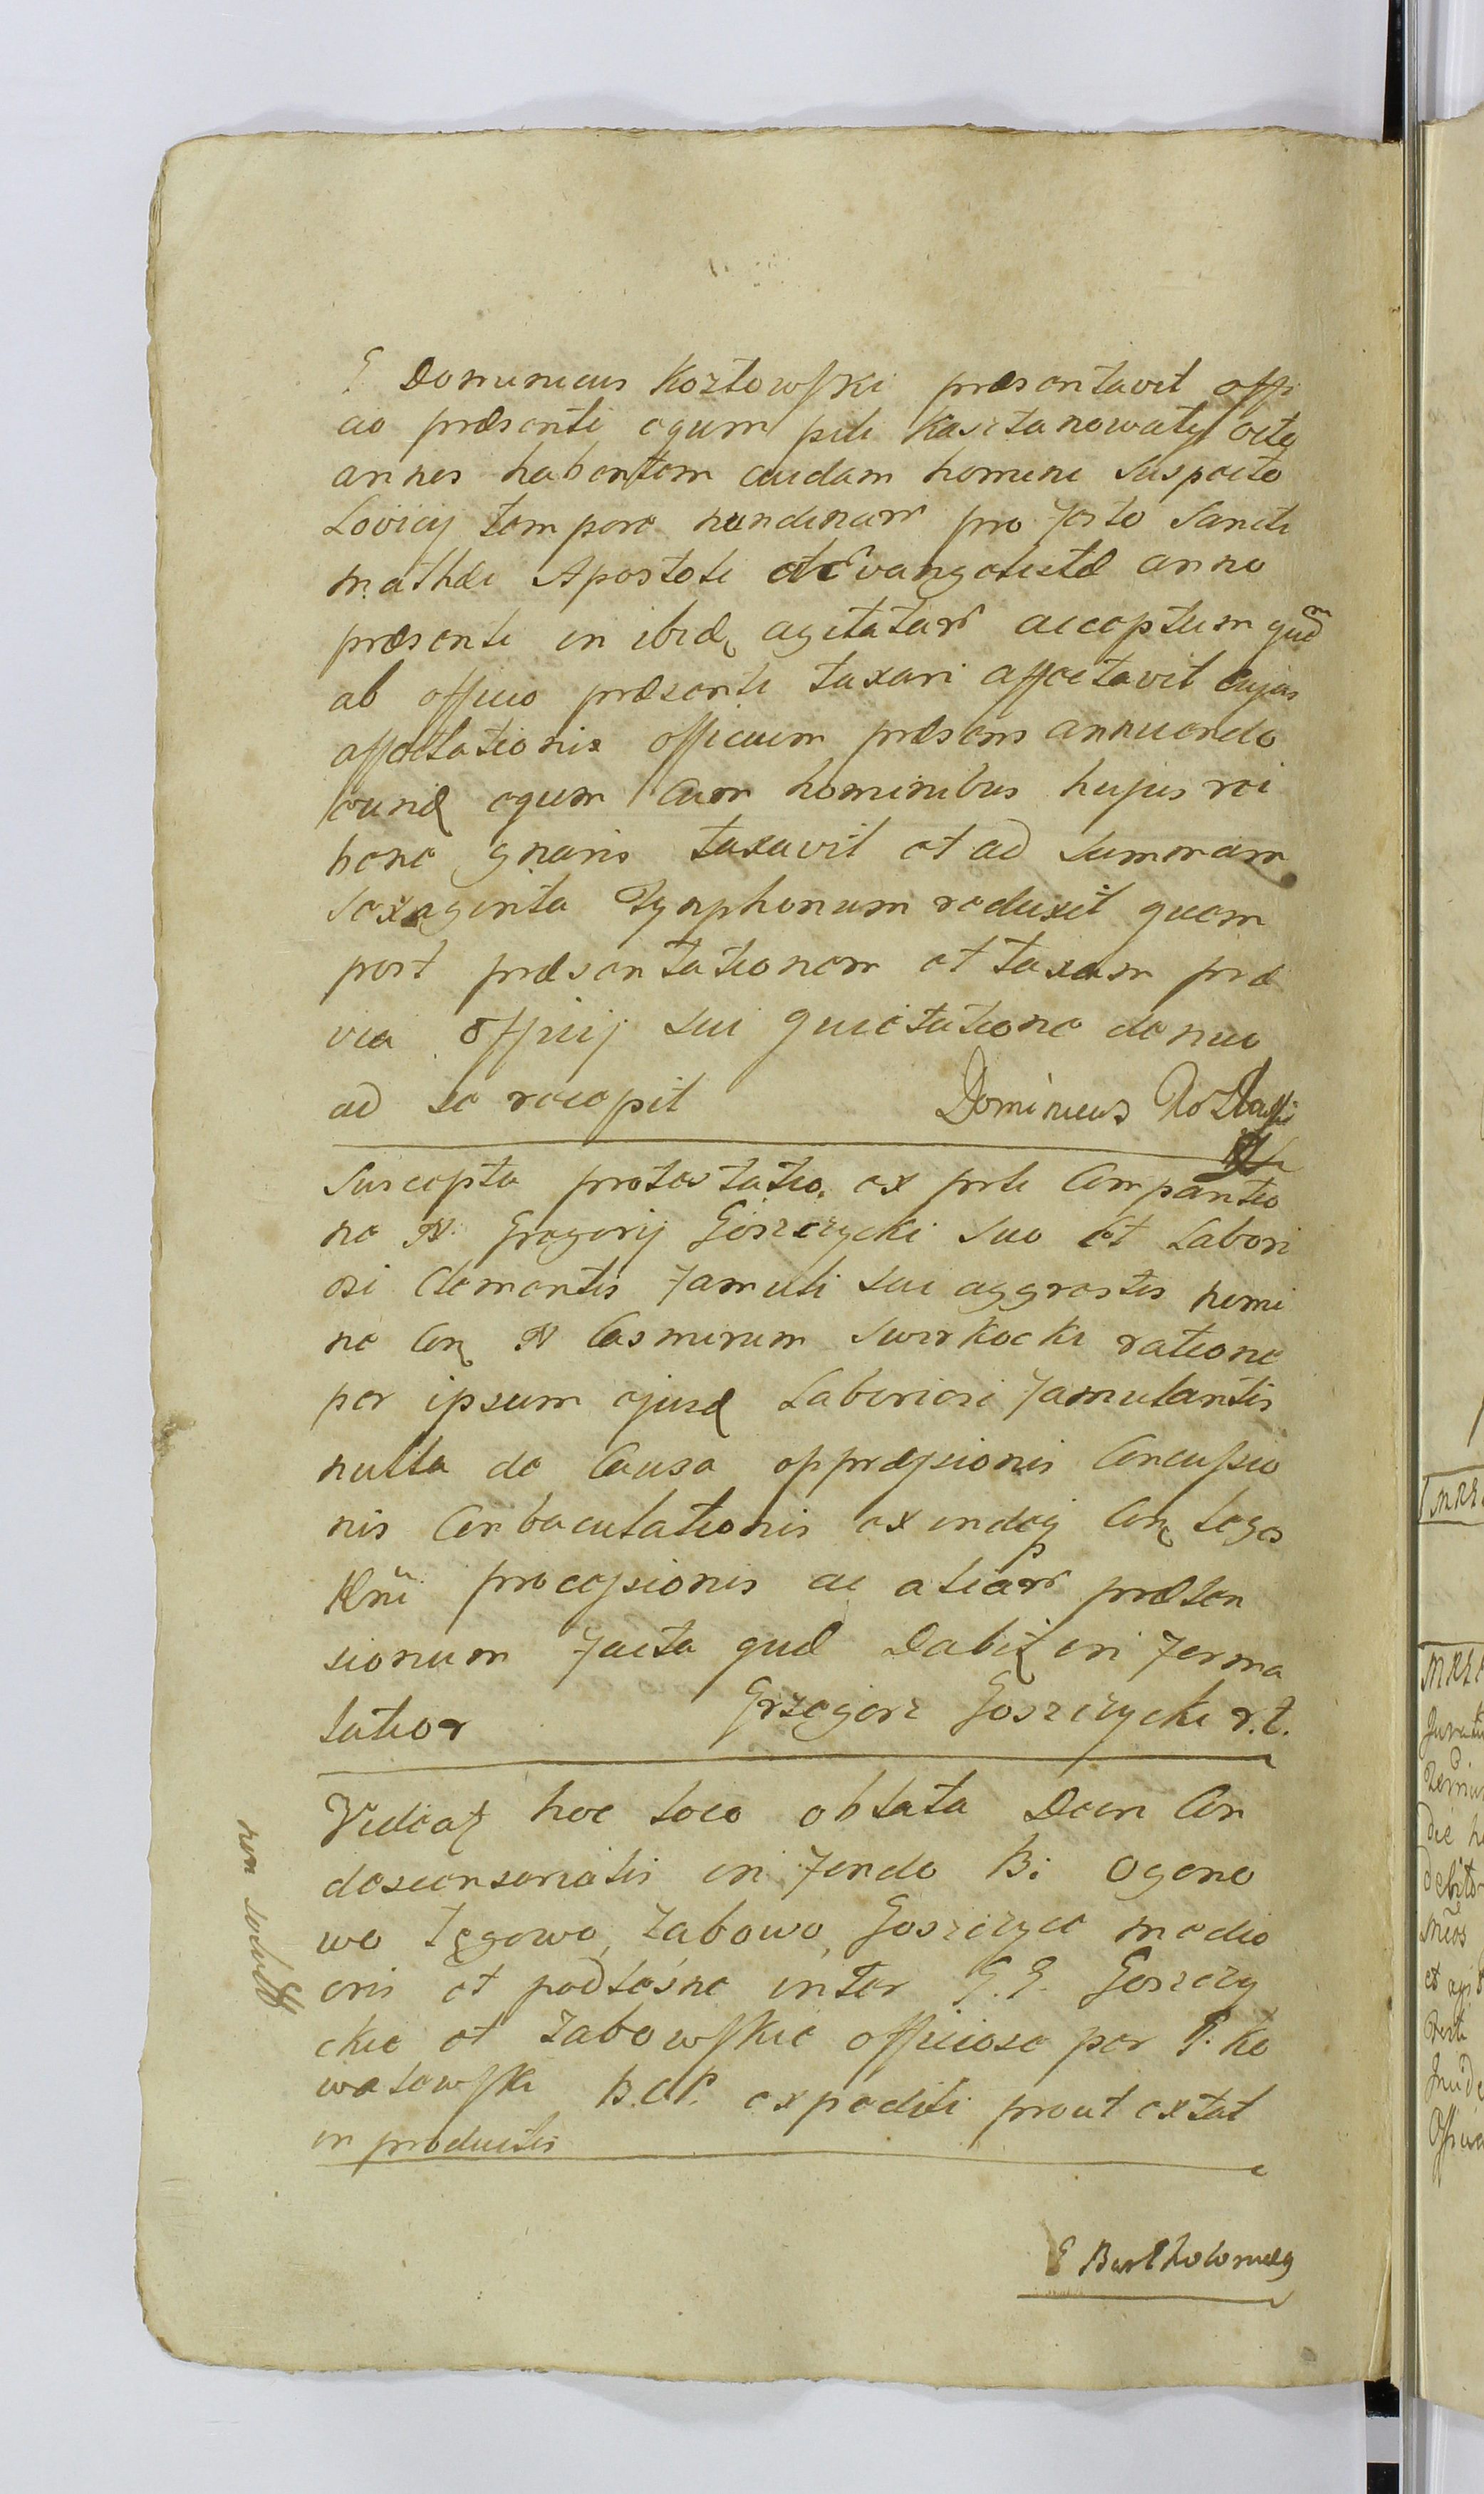 G Dominicus Kozłowski præsentavit offi
cio præsenti equm pili Kasztanowaty octo
annos habentem cuidam homini suspecto
Lovicij tempore nundinarr pro festo Sancti
Mathæi Apostoli et Evangelistæ anno
præsenti in ibid agitatarr acceptum quem
ab officio præsenti taxari affectavit cujus
affectationis officium præsens annuendo
eund equm cum hominibus hujus rei
bene gnaris taxavit et ad summam
sexaginta Tynphonum reduxit quem
post præsentationem et taxam præ
via officij sui quietatione denuo
ad se recepit Dominicus Kozłowski
Suscepta protestatio ex prte Compantio
ne N. Gregorij Goszczycki suo et Labori
osi Clementis famuli sui aggrestis nomi
ne Con N Casmirum Swirkocki ratione
per ipsum ejusd Laboriosi famulantis
nulla de Causa oppræssionis Concussio
nis Conbaculationis ex indeq Con leges
Rni processionis ac aliarr præten
sionum facta quæ Dabit in ferma
latior Grzegorz Goszczycki r.t.
Videat hoc loco oblata Decr Con
descensorialis in fundo B: Ogono
wo Łęgowo, Zabowo, Goszczyce medio
cris et podleśne inter G.G. Goszczy
ckie et Zabowskie officiose per G. Ko
walowski B.C.P. expediti prout extat
in productis
non solvit
G Bartholomeus